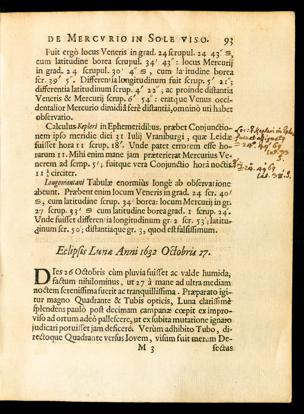 DE MERCVRIO IN SOLE VISO. 93
Fuit ergò locus Veneris in grad. 24 scrupul. 24 43″ ♎,
cum latitudine borea scrupul. 34′ 43″: locus Mercurij
in grad. 24 scrup. 30′ 4″ ♎, cum latitudine borea
scr. 39′ 5″. Differentia longitudinum fuit scrup. 5′ 21″;
differentia latitudinum scrup. 4′ 22″; ac proinde distantia
Veneris & Mercurij scrup. 6′ 54″: eratque Venus occi-
dentalior Mercurio dimidiâ ferè distantiâ, omninò uti habet
observatio.
Calculus Kepleri in Ephemeridibus, præbet Conjunctio-
nem ipso meridie diei 31 Iulij Vraniburgi, quæ Leidæ
fuisset hora 11 scrup. 18′. Unde patet errorem esse ho-
rarum 11. Mihi enim mane jam præterierat Mercurius Ve-
nerem ad scrup. 5′; fuitque vera Conjunctio horâ noctis
11 ½ circiter.
Longomontani Tabulæ enormius longè ab observatione
abeunt. Præbent enim locum Veneris in grad. 24 scr. 40′
♎, cum latitudine scrup. 34′ borea: locum Mercurij in gr.
27 scrup. 33′ ♎ cum latitudine borea grad. 1 scrup. 24.
Unde fuisset differentia longitudinum gr. 2 scr. 53′; latitu-
dinum scr. 50; distantia que gr. 3, quod est falsissimum.
Eclipsis Lunæ Anni 1632 Octobris 27.
DIes 26 Octobris cùm pluvia fuisset ac valde humida,
factum nihilominus, ut 27 à mane ad ultra mediam
noctem serenissima fuerit ac tranquillissima. Præparato igi-
tur magno Quadrante & Tubis opticis, Luna clarissimè
splendens paulò post decimam campanæ cœpit ex impro-
viso ad ortum adeò pallescere, ut ex subita mutatione ignaro
judicari potuisset jam deficere. Verùm adhibito Tubo, di-
rectoque Quadrante versus Jovem, visum fuit merum De-
M 3 fectus